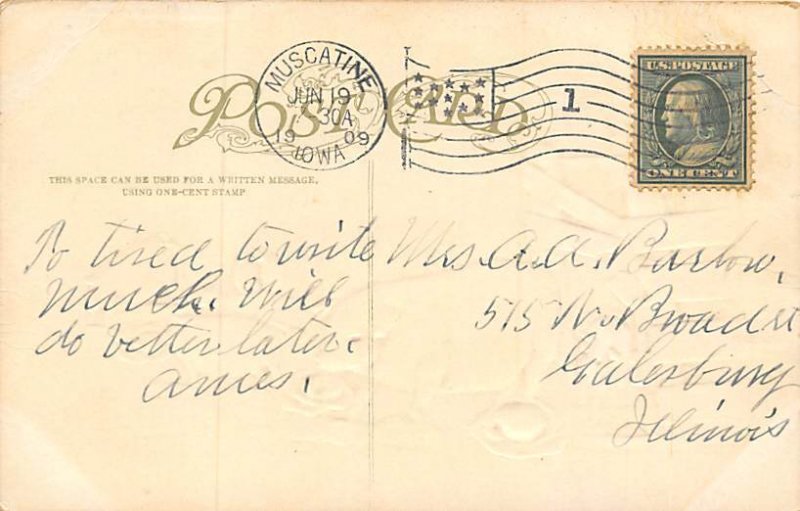 POST CARD
MUSCATINE
JUN 19
7 30A
1909
IOWA
1
U.S. POSTAGE
ONE CENT
THIS SPACE CAN BE USED FOR A WRITTEN MESSAGE,
USING ONE-CENT STAMP
To tired to write
much. Will
do better later.
Mrs. A. A. Barlow,
515 N. Broad st
Galesburg
Illinois